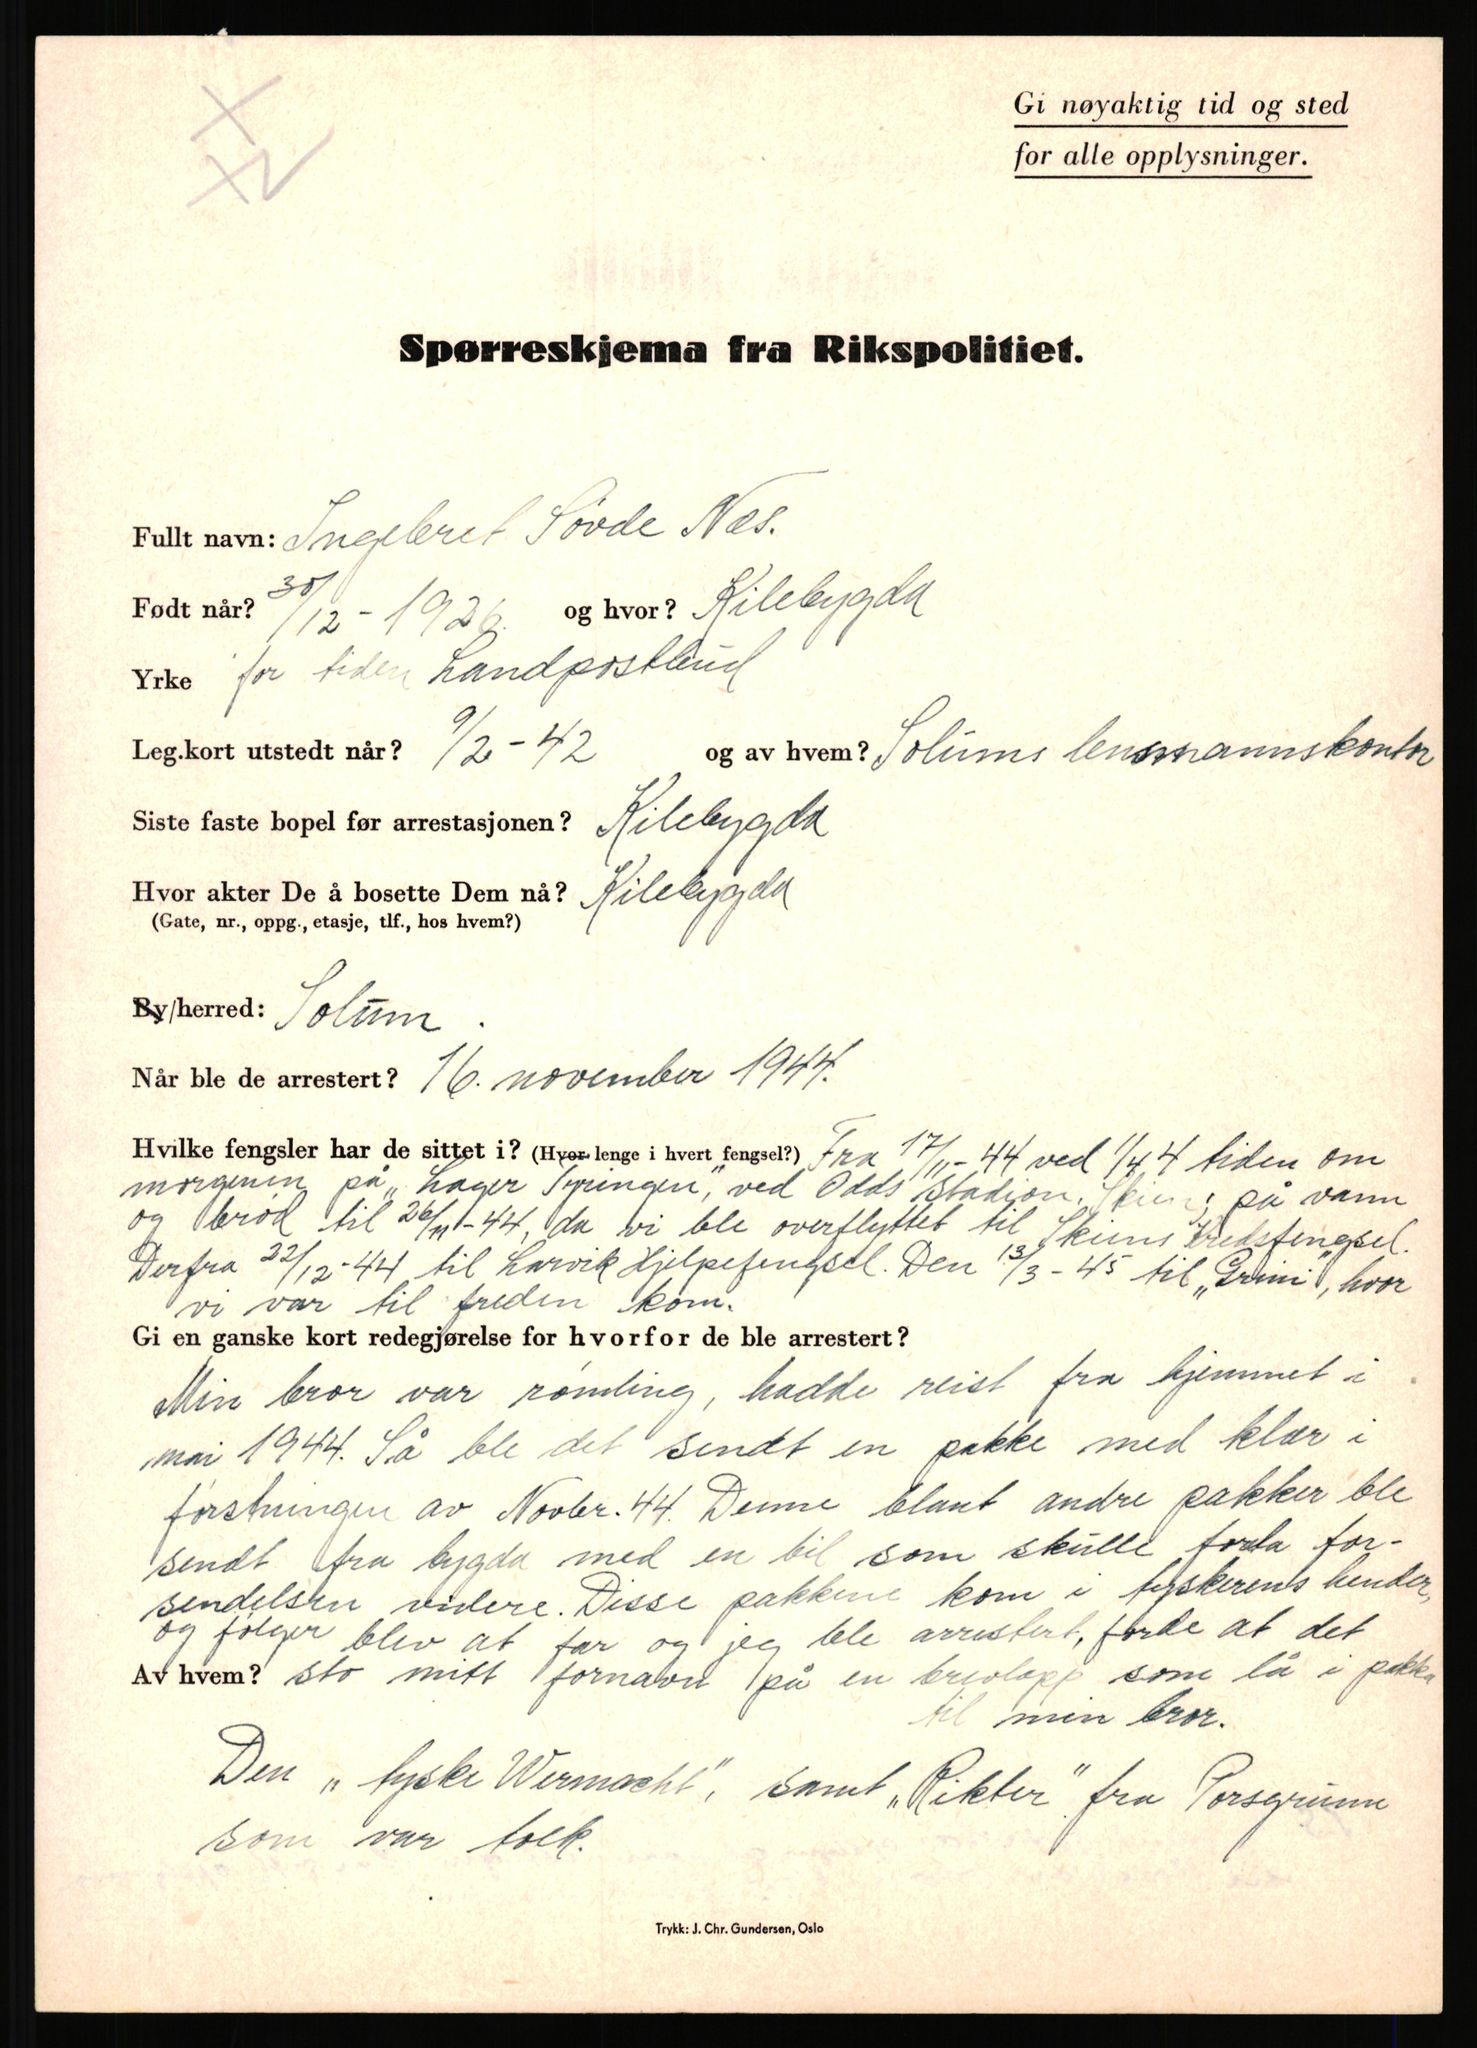 Gi nøyaktig tid og sted
for alle opplysninger.
Spørreskjema fra Rikspolitiet.
Fullt navn: Ingebret Søvde Næs.
Født når? 30/12-1926. og hvor? Kilebygda
Yrke for tiden Landpostbud
Leg.kort utstedt når? 9/2-42 og av hvem? Solums lensmannskontor
Siste faste bopel før arrestasjonen? Kilebygda
Hvor akter De å bosette Dem nå? Kilebygda
(Gate, nr., oppg., etasje, tlf., hos hvem?)
By/herred: Solum.
Når ble de arrestert? 16. november 1944.
Hvilke fengsler har de sittet i? (Hvor lenge i hvert fengsel?) Fra 17/11-44 ved 1/4 4 tiden om
morgenen på „Lager Tyringen", ved Odds stadion. Skien; på vann
og brød til 26/11-44, da vi ble overflyttet til Skiens Kredsfengsel.
Derfra 22/12-44 til Larvik Hjelpefengsel. Den 13/3-45 til „Grini", hvor
vi var til freden kom.
Gi en ganske kort redegjørelse for hvorfor de ble arrestert?
Min bror var rømling, hadde reist fra hjemmet i
mai 1944. Så ble det sendt en pakke med klær i
førstningen av Novbr. 44. Denne blant andre pakker ble
sendt fra bygda med en bil som skulle forda for-
sendelsen videre. Disse pakkene kom i tyskerens hender,
og følger blev at far og jeg ble arrestert, forde at det
Av hvem? sto mitt fornavn på en brevlapp som lå i pakka
til min bror.
Den „tyske Wermacht", samt „Rikter" fra Porsgrunn
som var tolk.
Trykk: J. Chr. Gundersen, Oslo